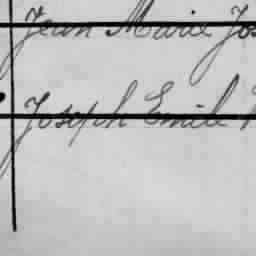 Jean Marie Jos
Joseph Emile